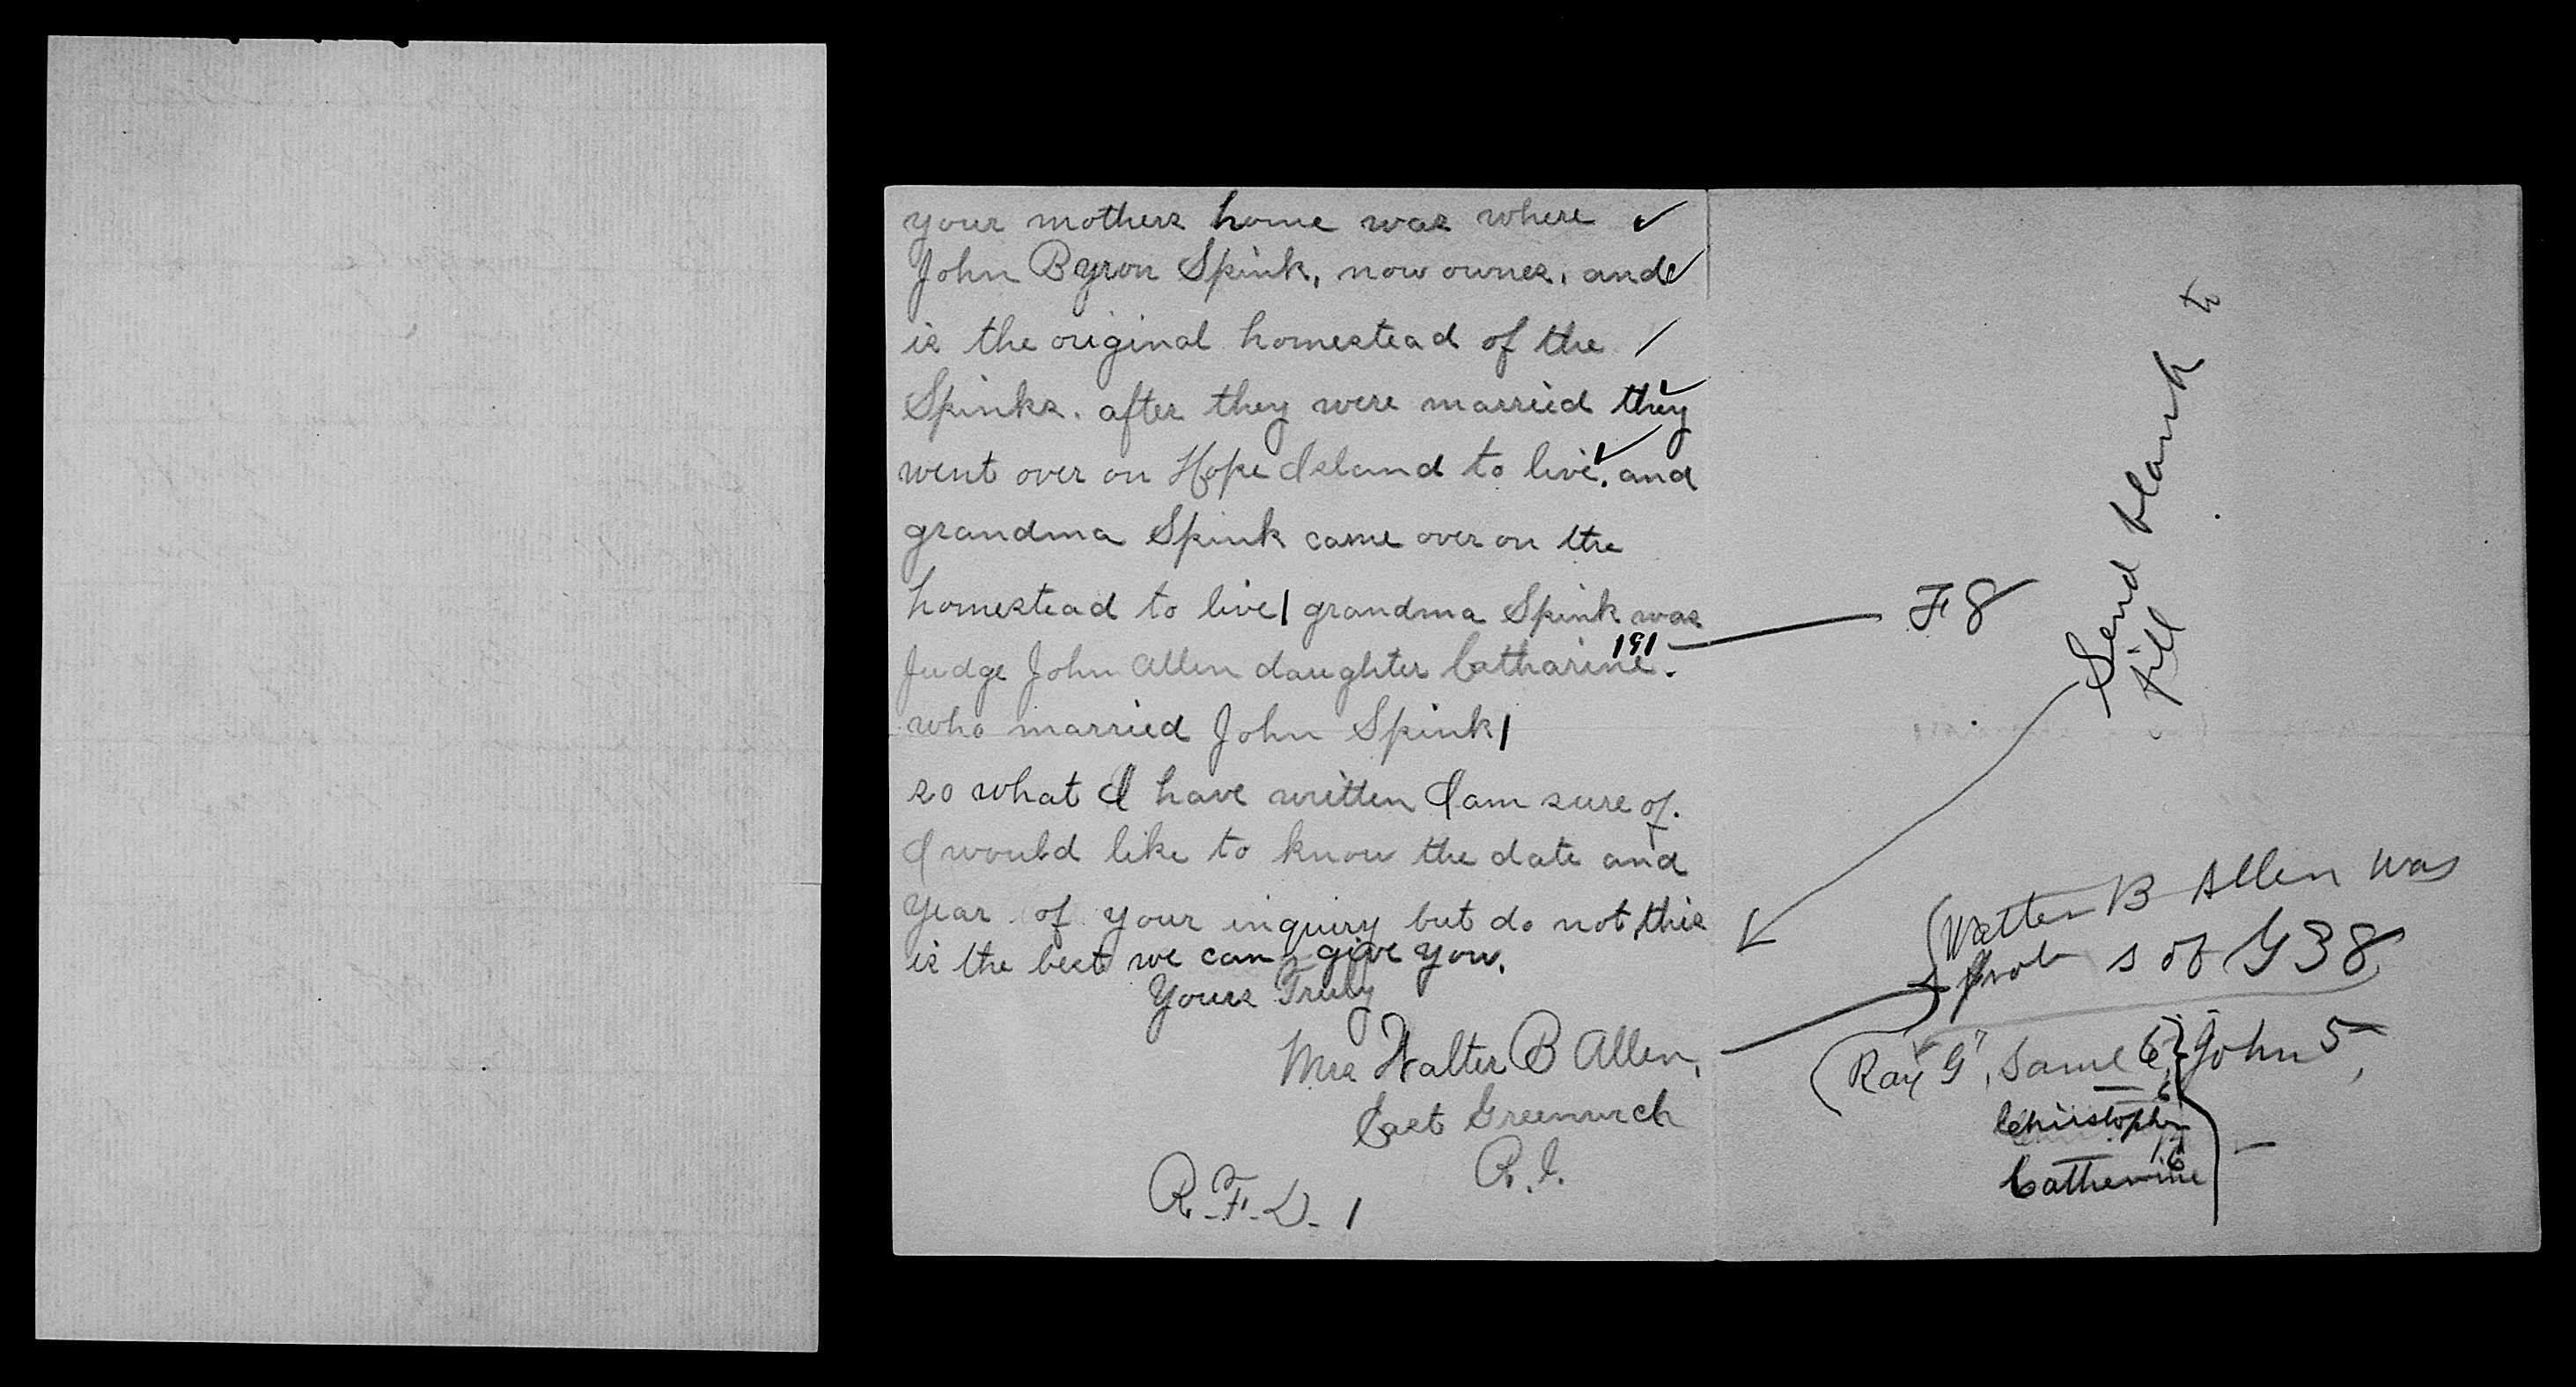 your mothers home was where ✓
John Byron Spink, now owns, and ✓
is the original homestead of the /
Spinks. after they were married they ✓
went over on Hope Island to live. and ✓
grandma Spink came over on the
homestead to live/ grandma Spink was
Judge John Allen daughter Catharine.
191
who married John Spink/
so what I have written I am sure of.
I would like to know the date and
year of your inquiry but do not, this
is the best we can give you.
Yours Truly
Mrs Walter B Allen,
East Greenwich
R.I.
R.F.D. 1
F 8
Send blank to
fill
Walter B Allen was
prob s of G38
(Ray G, Saml 6 John 5,
Christopher 6
Catherine 6